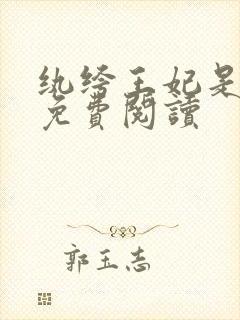 纨绔王妃是
免費閱讀
郭玉志